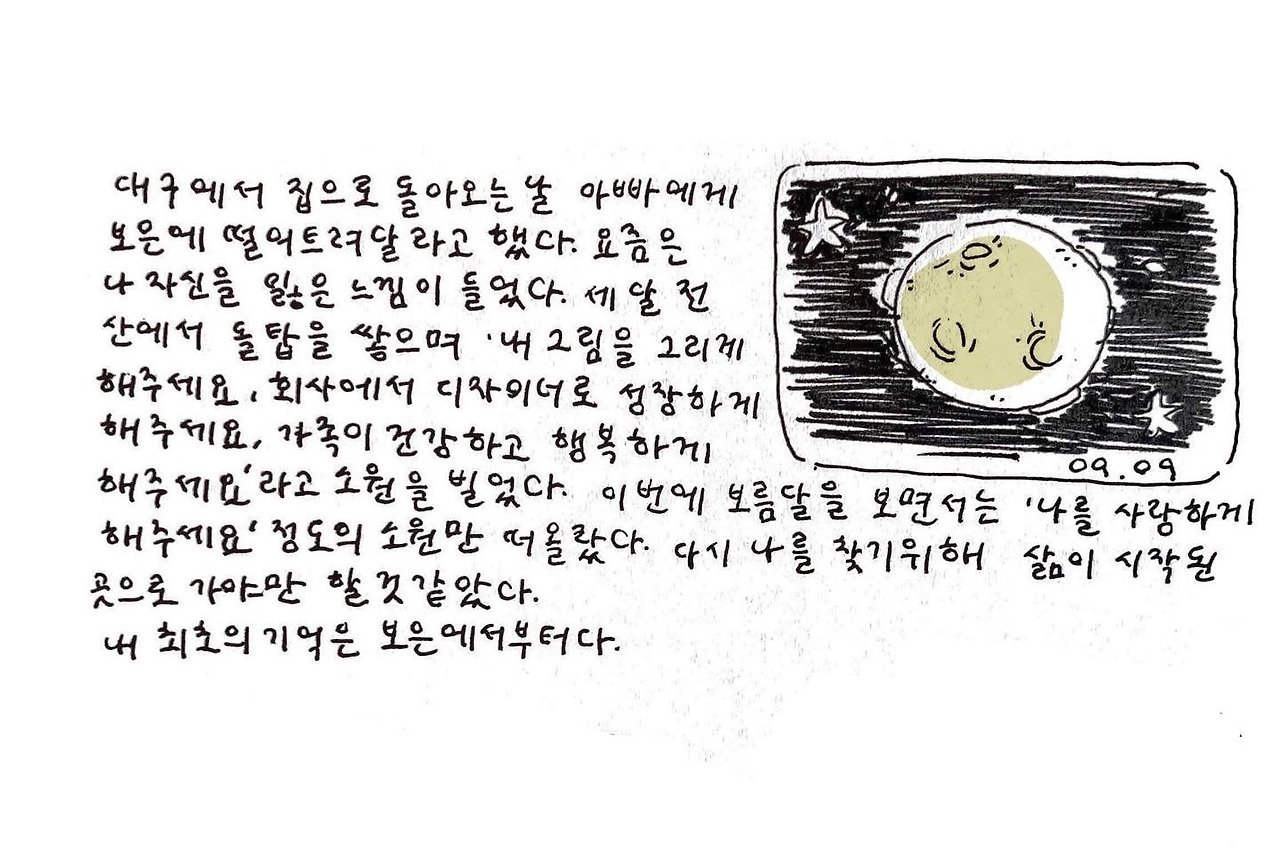 대구에서 집으로 돌아오는 날 아빠에게
보은에 떨어트려달라고 했다. 요즘은
나 자신을 잃은 느낌이 들었다. 세 달 전
산에서 돌탑을 쌓으며 '내 그림을 그리게
해주세요, 회사에서 디자이너로 성장하게
해주세요, 가족이 건강하고 행복하게
09.09
해주세요'라고 소원을 빌었다. 이번에 보름달을 보면서는 '나를 사랑하게
해주세요' 정도의 소원만 떠올랐다. 다시 나를 찾기위해 삶이 시작된
곳으로 가야만 할 것 같았다.
내 최초의 기억은 보은에서부터다.